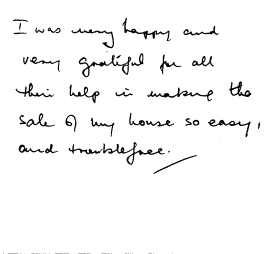 I was very happy and
very grateful for all
their help in making the
sale of my house so easy,
and troublefree.